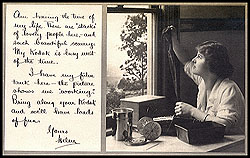 Am having the time of
my life. There are "stacks"
of lovely people here, and
such beautiful scenery.
My Kodak is busy most
of the time.
I have my film
tank here – the picture
shows me "working".
Bring along your Kodak
and we'll have loads
of fun.
Yours
Helen